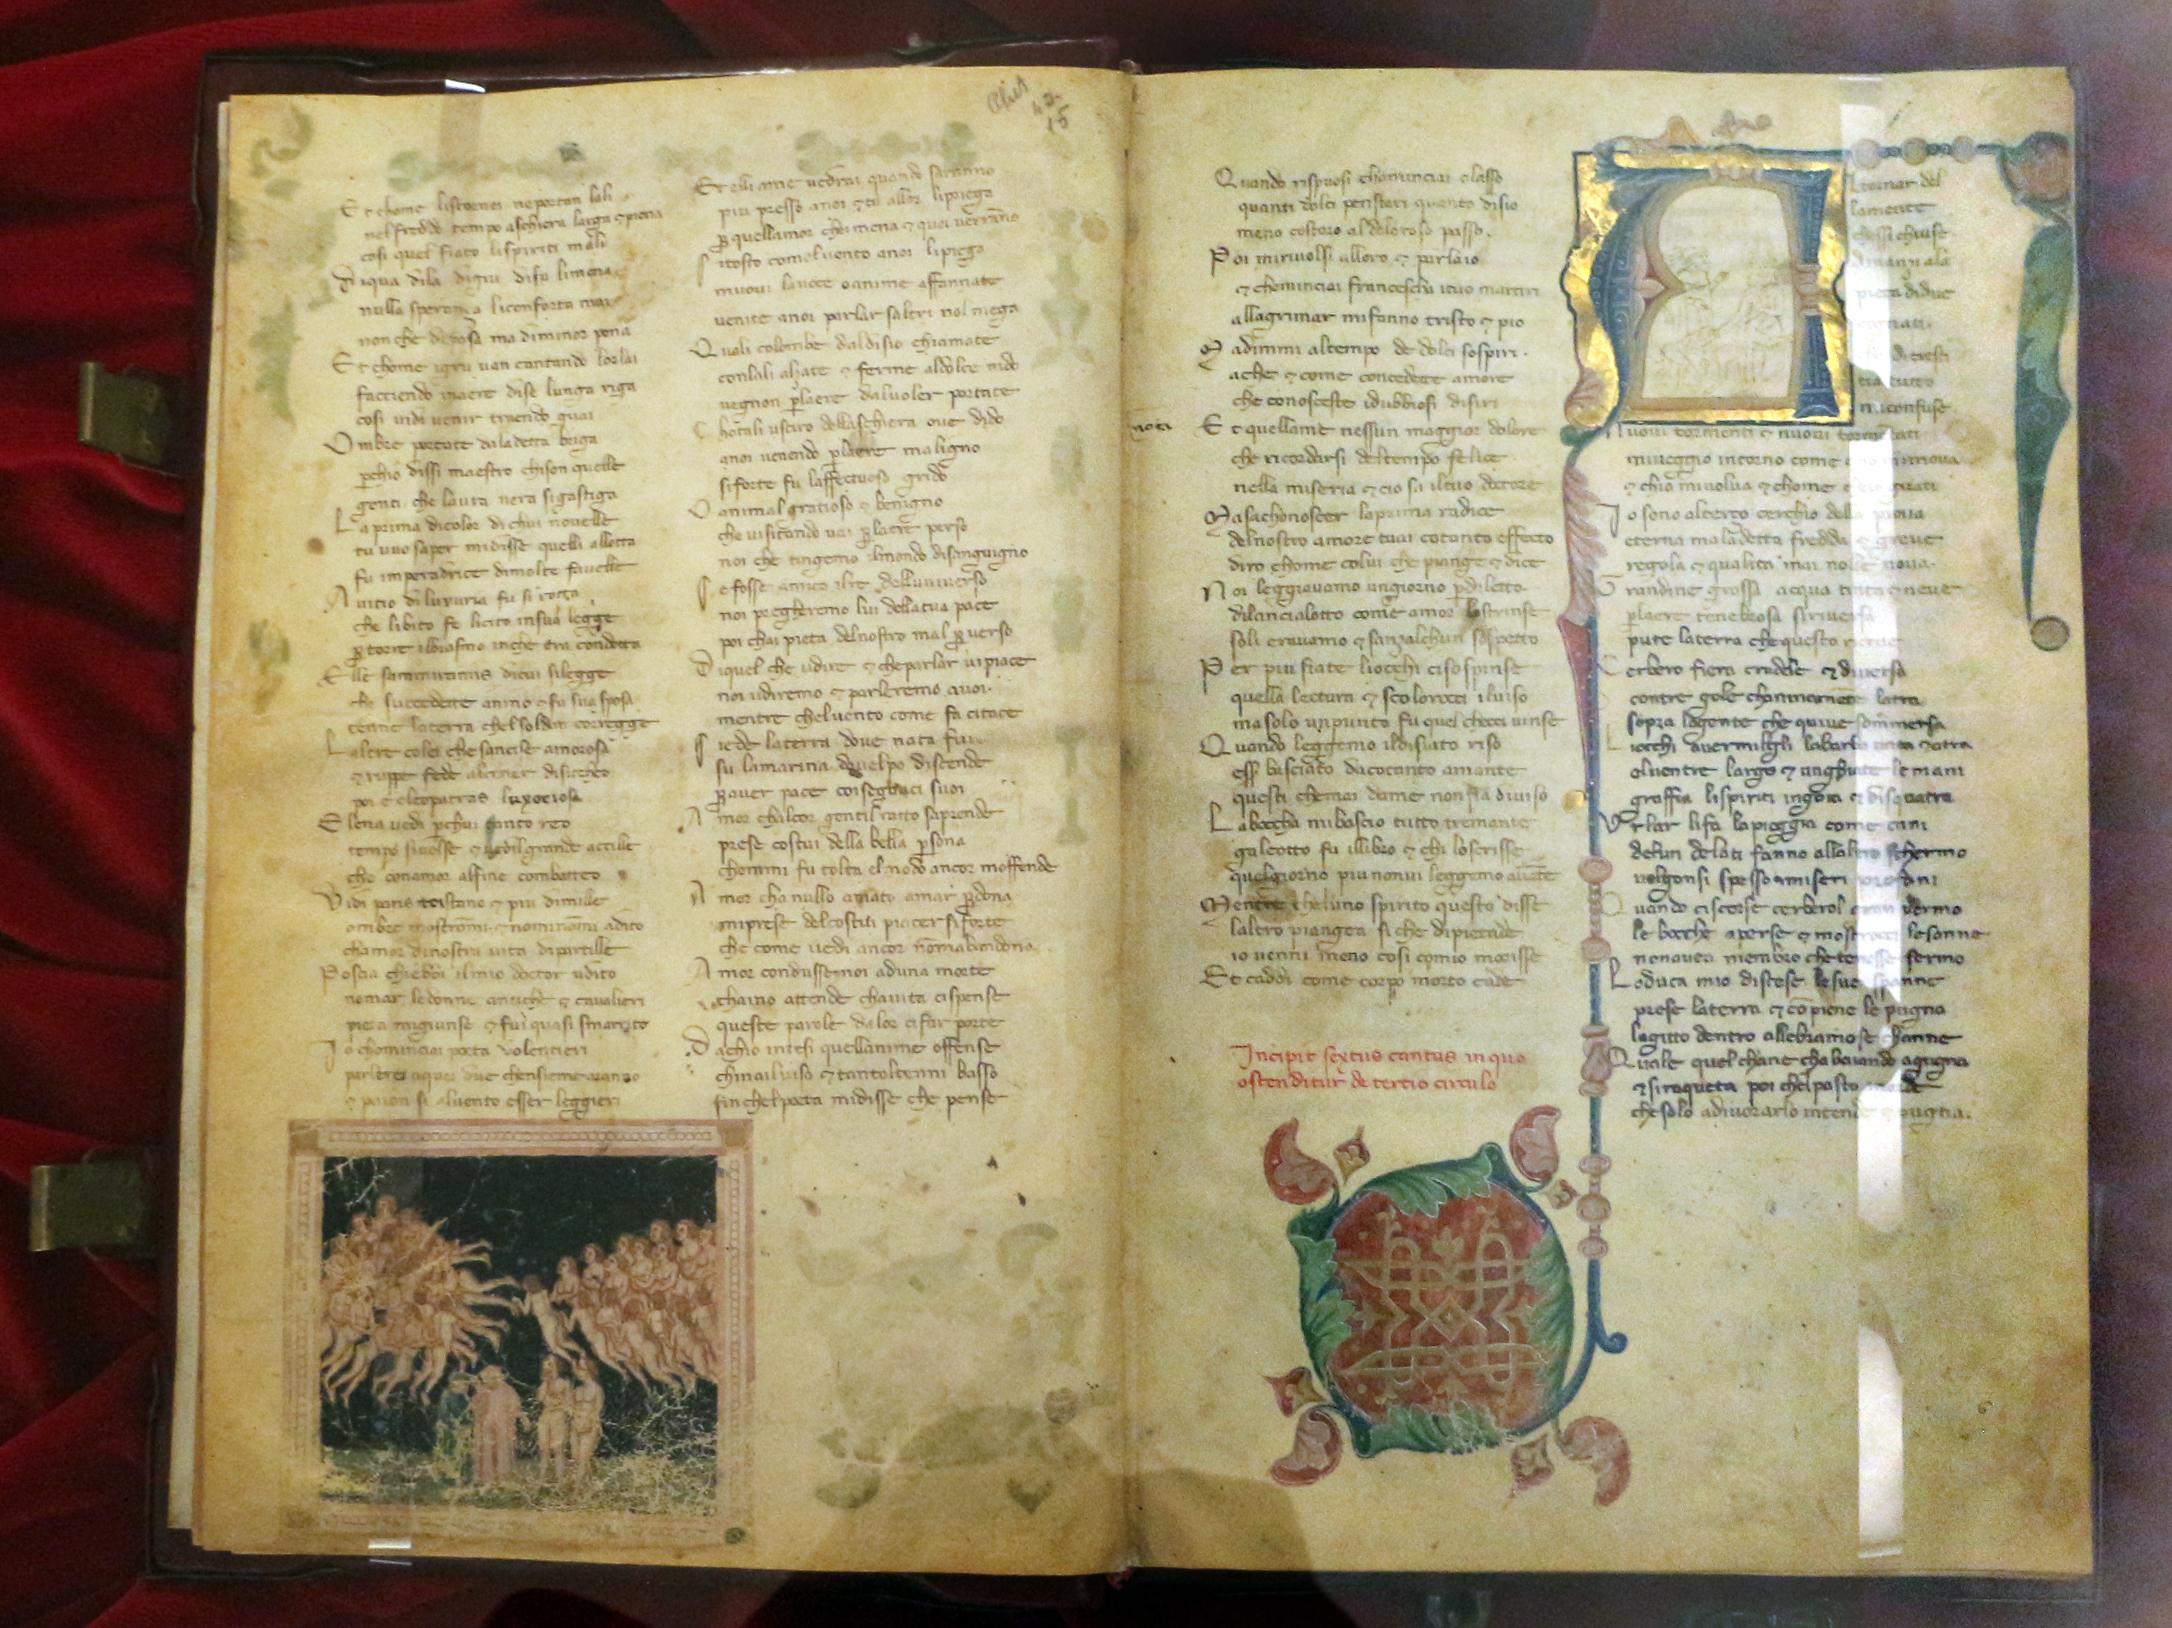 Et chome listornei neporton lali
nelfreddo tempo aschiera larga & piena
cosi quel fiato lispiriti mali
Di qua dila digiu disu limena
nulla speranza liconforta mai
non che di posa ma diminor pena
Et chome igru van cantando lor lai
facciendo inaere dise lunga riga
cosi vidi venir traendo guai
Ombre portate da la detta briga
perchio dissi maestro chison quelle
genti che laura nera sigastiga
La prima dicolor di chui novelle
tu vuo saper midisse quelli allotta
fu imperadrice dimolte favelle
A vitio di luxuria fu si rotta
che libito fe licito in sua legge
per torre ilbiasmo inche era condotta
Elle samiramis dicui silegge
che succedette anino & fu sua sposa
tenne laterra chelsoldan corregge
Laltre colei che sancise amorosa
& ruppe fede alcener disicheo
poi e cleopatras luxoriosa
Elena vedi perchui tanto reo
tempo sivolse & vedil grande accille
che conamor alfine combatteo
Vidi paris tristano & piu dimille
ombre mostrommi & nominommi adito
chamor dinostra vita dipartille
Poscia chiebbi ilmio doctor udito
nomar ledonne antiche & cavalieri
pieta migiunse & fui quasi smarrito
Io chominciai poeta volentieri
parlerei aquei due chensieme vanno
& paion si alvento esser leggieri
Et elli ame vedrai quando saranno
piu presso anoi & tu allor lipriega
per quellamor cheimena & quei verranno
Sitosto comelvento anoi lipiega
muovi lavoce oanime affannate
venite anoi parlar saltri nol niega
Quali colombe daldisio chiamate
conlali alzate & ferme aldolce nido
vegnon per laere dalvoler portate
Chotali usciro dellaschiera ove dido
anoi venendo per laere maligno
siforte fu laffectuoso grido
O animal gratioso & benigno
che visitando vai per laere perso
noi che tingemo ilmondo disanguigno
Se fosse amico ilre delluniverso
noi pregheremo lui dellatua pace
poi chai pieta delnostro mal perverso
Di quel che udire & cheparlar vi piace
noi udiremo & parleremo avoi
mentre chelvento come fa citace
Siede laterra dove nata fui
su lamarina dovelpo discende
per aver pace coiseghuaci suoi
Amor chalcor gentil ratto saprende
prese costui della bella persona
chemmi fu tolta elmodo ancor moffende
Amor cha nullo amato amar perdona
mi prese delcostui piacer siforte
che come vedi ancor nommabandona
Amor condusse noi aduna morte
chaino attende chavita cispense
queste parole da lor cifur porte
Dachio intesi quellanime offense
chinailviso & tantoltenni basso
finchelpoeta midisse che pense
Quando rispuosi chominciai olasso
quanti dolci pensieri quanto disio
meno costoro al doloroso passo.
Poi mirivolsi alloro & parlaio
& chominciai francescha ituo martiri
allagrimar mifanno tristo & pio
Madimmi altempo de dolci sospiri.
ache & come concedette amore
che conosceste idubbiosi disiri
nota
Et quellame nessun maggior dolore
che ricordarsi deltempo felice
nella miseria & cio sa iltuo doctore
Masachonoscer laprima radice
delnostro amore tuai cotanto effecto
diro chome colui che piange & dice
Noi leggiavamo ungiorno per diletto
dilancialotto come amor lostrinse
soli eravamo & sanzalchun sospetto
Per piu fiate liocchi ci sospinse
quella lectura & scolorocci ilviso
ma solo unpunto fu quel checci vinse
Quando leggemo ildisiato riso
esser basciato dacotanto amante
questi chemai dame non fia diviso
La boccha mibascio tutto tremante
galeotto fu illibro & chi loscrisse
quelgiorno piu nonvi leggemo avante
Mentre cheluno spirito questo disse
laltro piangea si che dipietade
io venni meno cosi comio morisse
Et caddi come corpo morto cade
Incipit sextus cantus in quo
ostenditur de tertio circulo
Al tornar del
lamente
chessi chiuse
dinanzi ala
pieta didue
cognati.
che ditresti
tia tutto
miconfuse
Nuovi tormenti & nuovi tormentati
miveggio intorno come chio mimova
& chio mivolva & chome chio miguati
Io sono alterço cerchio della piova
eterna maladetta fredda & greve
regola & qualita mai nolle nova.
Grandine grossa acqua tinta & neve
per laere tenebroso siriversa
pute laterra che questo riceve
Cerbero fiera crudele & diversa
contre gole chaninamente latra
sopra lagente che quive sommersa
Liocchi avermigli labarba unta & atra
elventre largo & unghiate le mani
graffia lispiriti ingoia & disquatra
Urlar lifa lapioggia come cani
delun delati fanno allaltro schermo
volgonsi spesso imiseri profani
Quando ciscorse cerberol gran vermo
le bocche aperse & mostrocci lesanne
nonavea membro che tenesse fermo
Loduca mio distese le sue spanne
prese laterra & compiene le pugna
lagitto dentro allebramose channe
Quale quel chane cha baiando agugna
& siraqueta poi chelpasto morde
che solo adivorarlo intende & pugna.